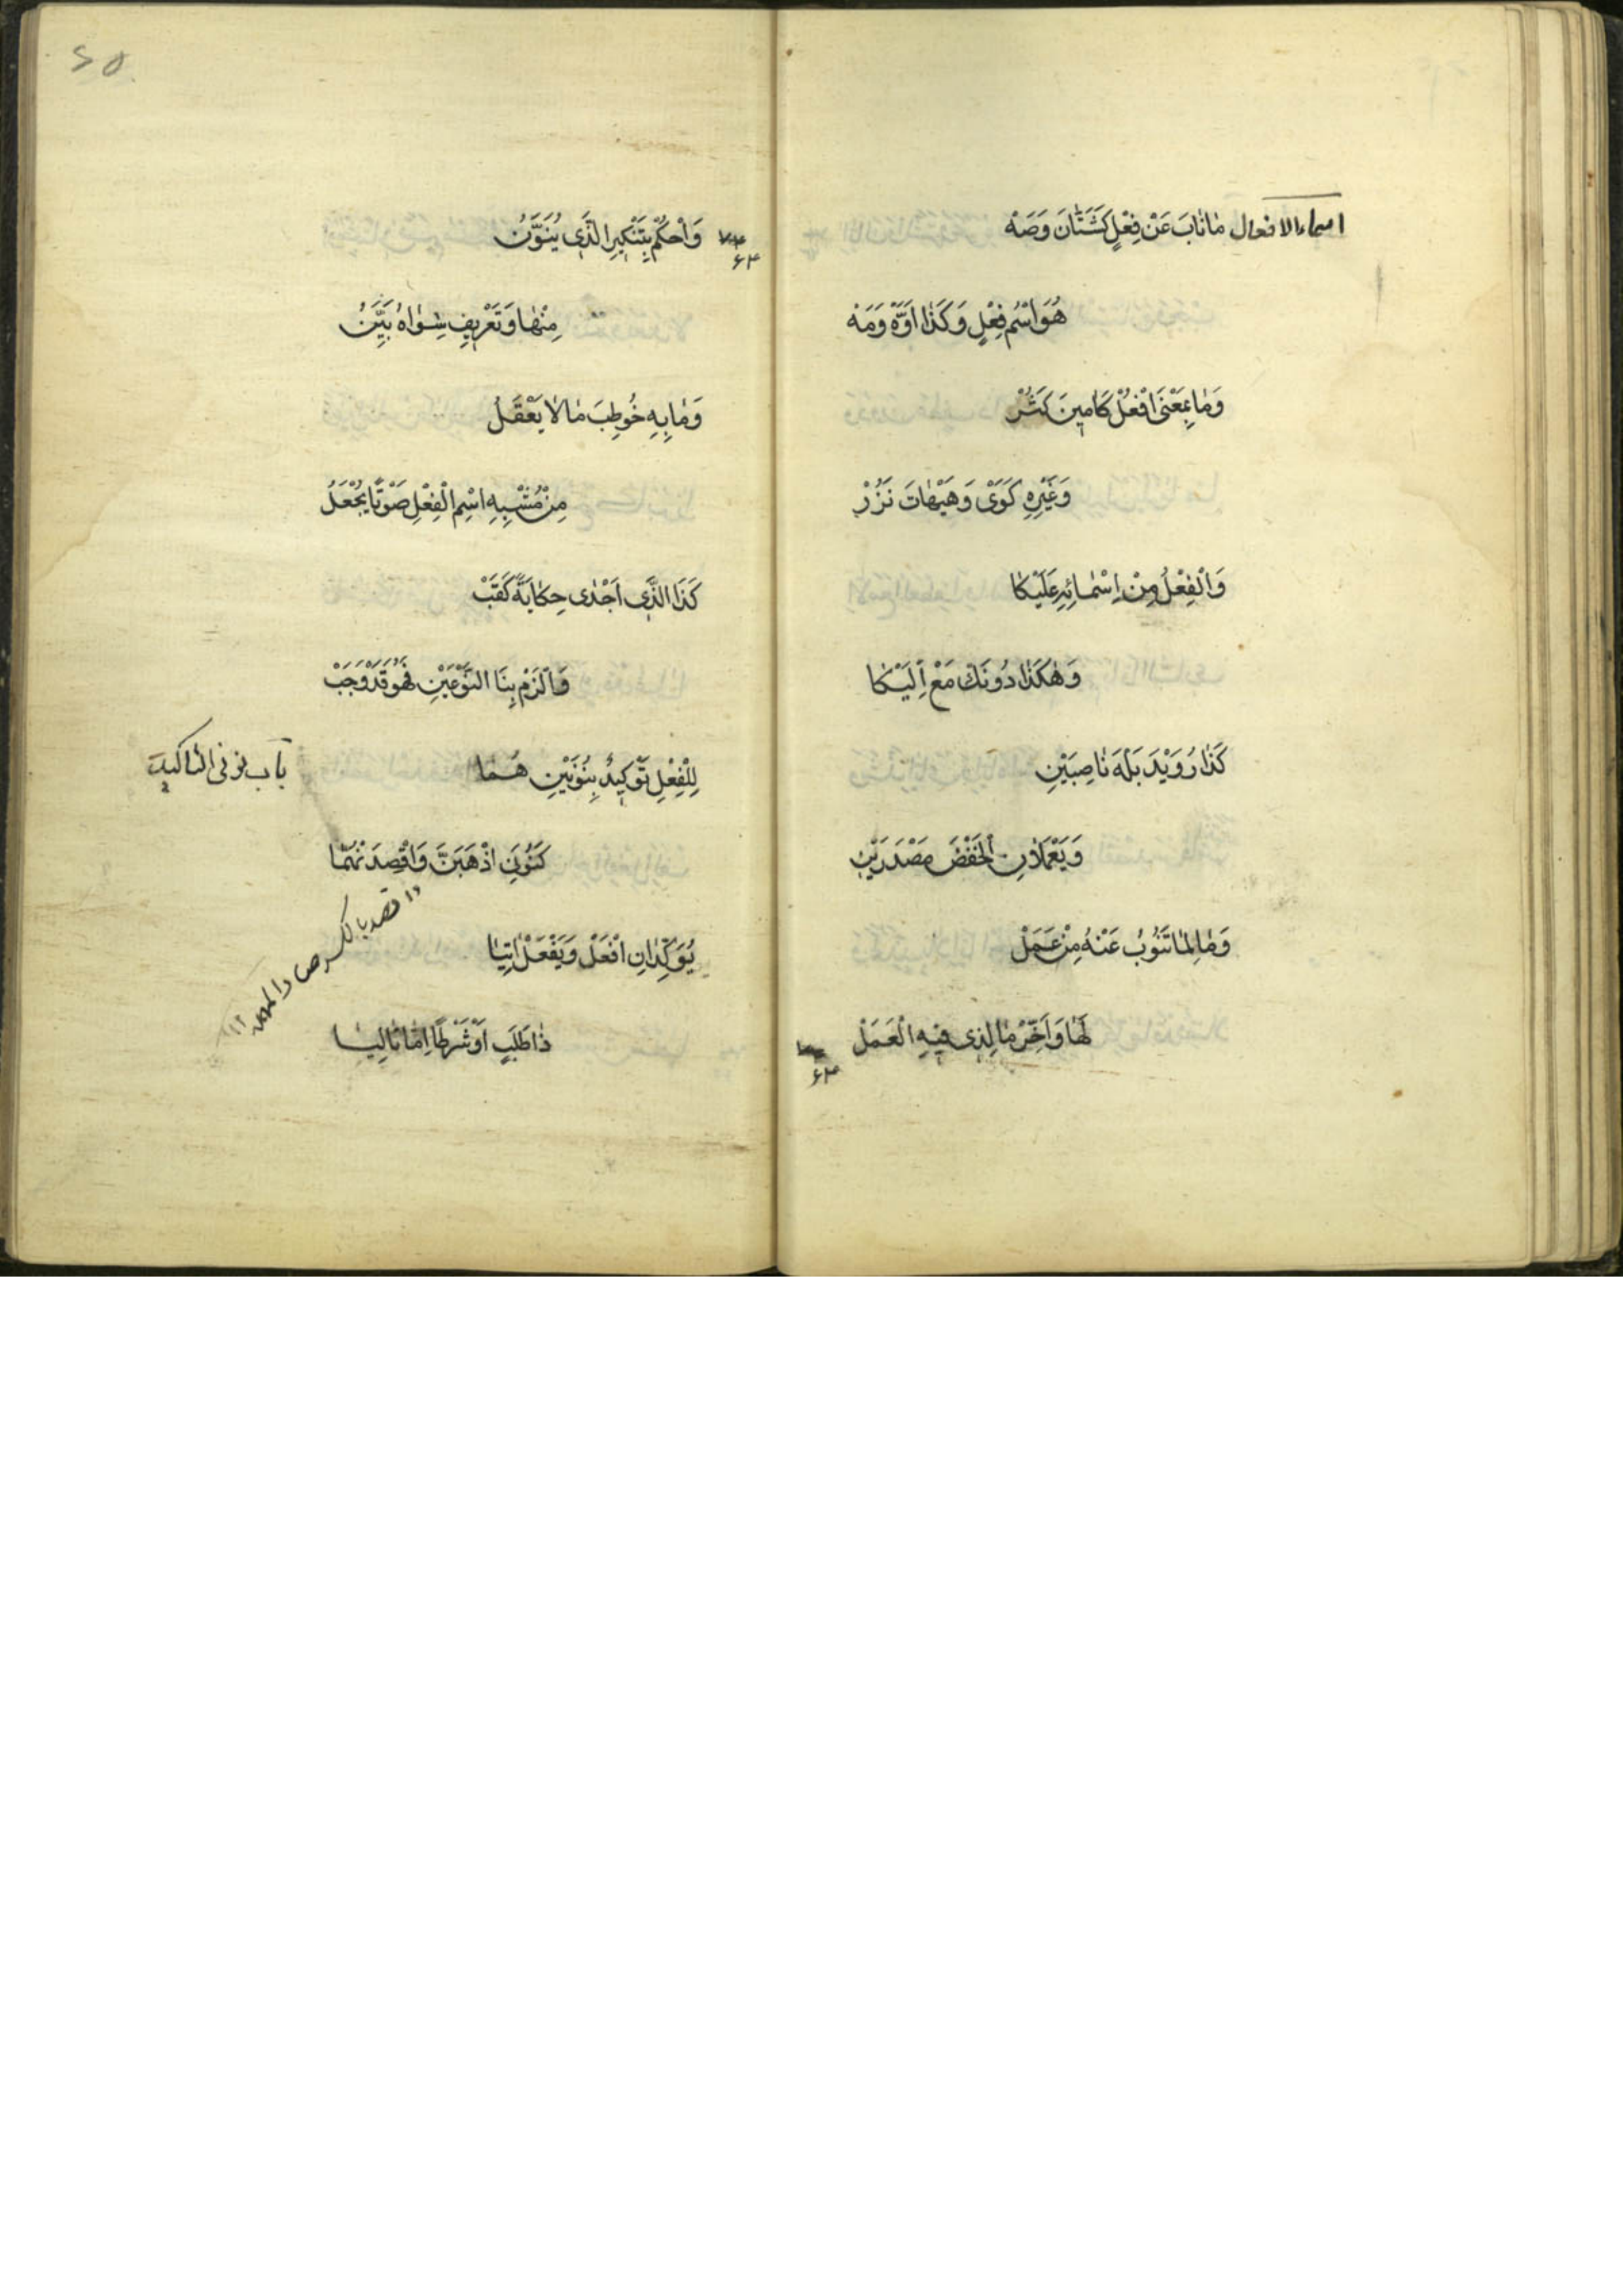 اسماء الافعال مَا نَابَ عَنْ فِعْلٍ كَشَتَّانَ وَصَهْ
هُوَ اسْمُ فِعْلٍ وَكَذَا اَوَّهْ وَمَهْ
وَمَا بِمَعْنَى افْعَلْ كَامِينَ كَثُرْ
وَغَيْرِهِ كَوَىْ وَهَيْهَاتَ نَزُرْ
وَالْفِعْلُ مِنْ اِسْمَائِهِ عَلَيْكَا
وَهٰكَذَا دُونَكَ مَعْ اِلَيْكَا
كَذَا رُوَيْدَ بَلْهَ نَاصِبَيْنِ
وَيَعْمَلَانِ الْخَفْضَ مَصْدَرَيْنِ
وَمَا لِمَا تَنُوبُ عَنْهُ مِنْ عَمَلْ
لَهَا وَاَخِّرْ مَا لِذِى فِيهِ الْعَمَلْ
۶۳
۲۵
۶۳
وَاحْكُمْ بِتَنْكِيرِ الَّذِى يُنَوَّنُ
مِنْهَا وَتَعْرِيفُ سِوَاهُ بَيِّنُ
وَمَا بِهِ خُوطِبَ مَا لَا يَعْقَلُ
مِنْ مُشْبِهِ اسْمِ الْفِعْلِ صَوْتًا يُجْعَلُ
كَذَا الَّذِى اَجْدٰى حِكَايَةً كَقَبْ
وَالْزَمْ بِنَا النَّوْعَيْنِ فَهُوَ قَدْ وَجَبْ
باب نونى التاكيد
لِلْفِعْلِ تَوْكِيدٌ بِنُونَيْنِ هُمَا
كَنُونَىِ اذْهَبَنَّ وَاقْصِدَنْهُمَا
قصد بالكسر
يُوَكِّدَانِ افْعَلْ وَيَفْعَلْ اٰتِيَا
ذَا طَلَبٍ اَوْ شَرْطًا اِمَّا تَالِيَا